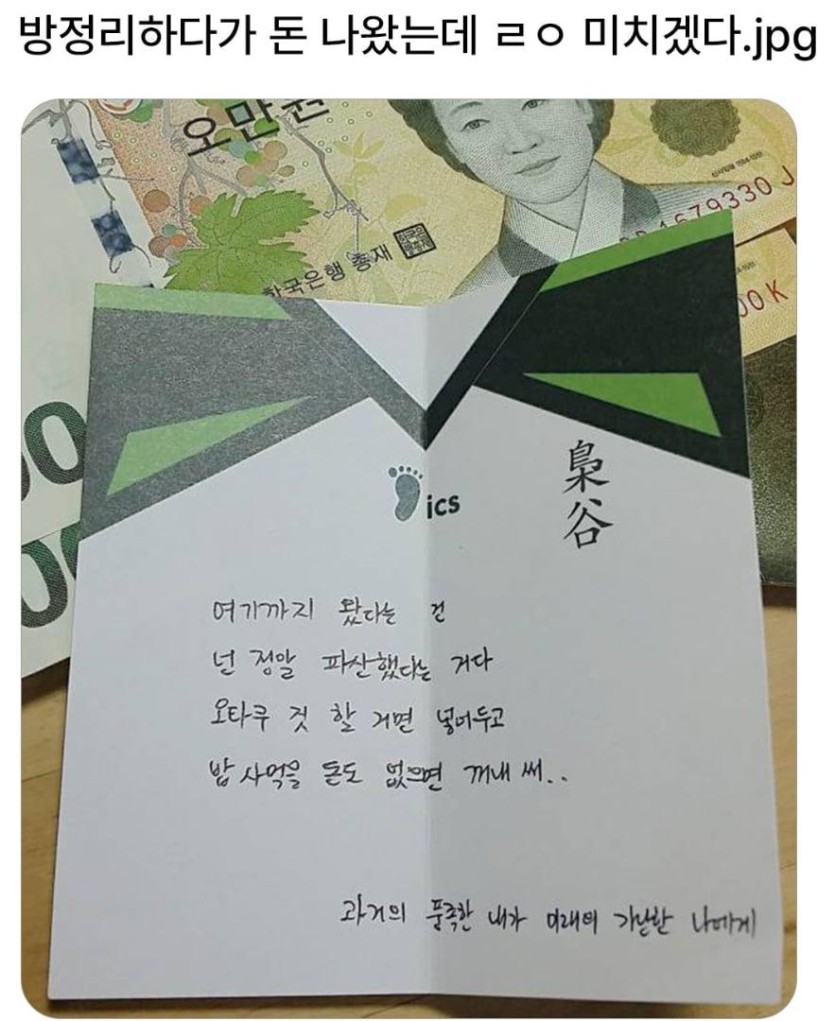 방정리하다가 돈 나왔는데 ㄹㅇ 미치겠다.jpg
오만원
한국은행 총재
1679330 J
00 K
00
00
ics
梟谷
여기까지 왔다는 건
넌 정말 파산했다는 거다
오타쿠 것 할 거면 넣어두고
밥 사먹을 돈도 없으면 꺼내 써..
과거의 풍족한 내가 미래의 가난한 나에게